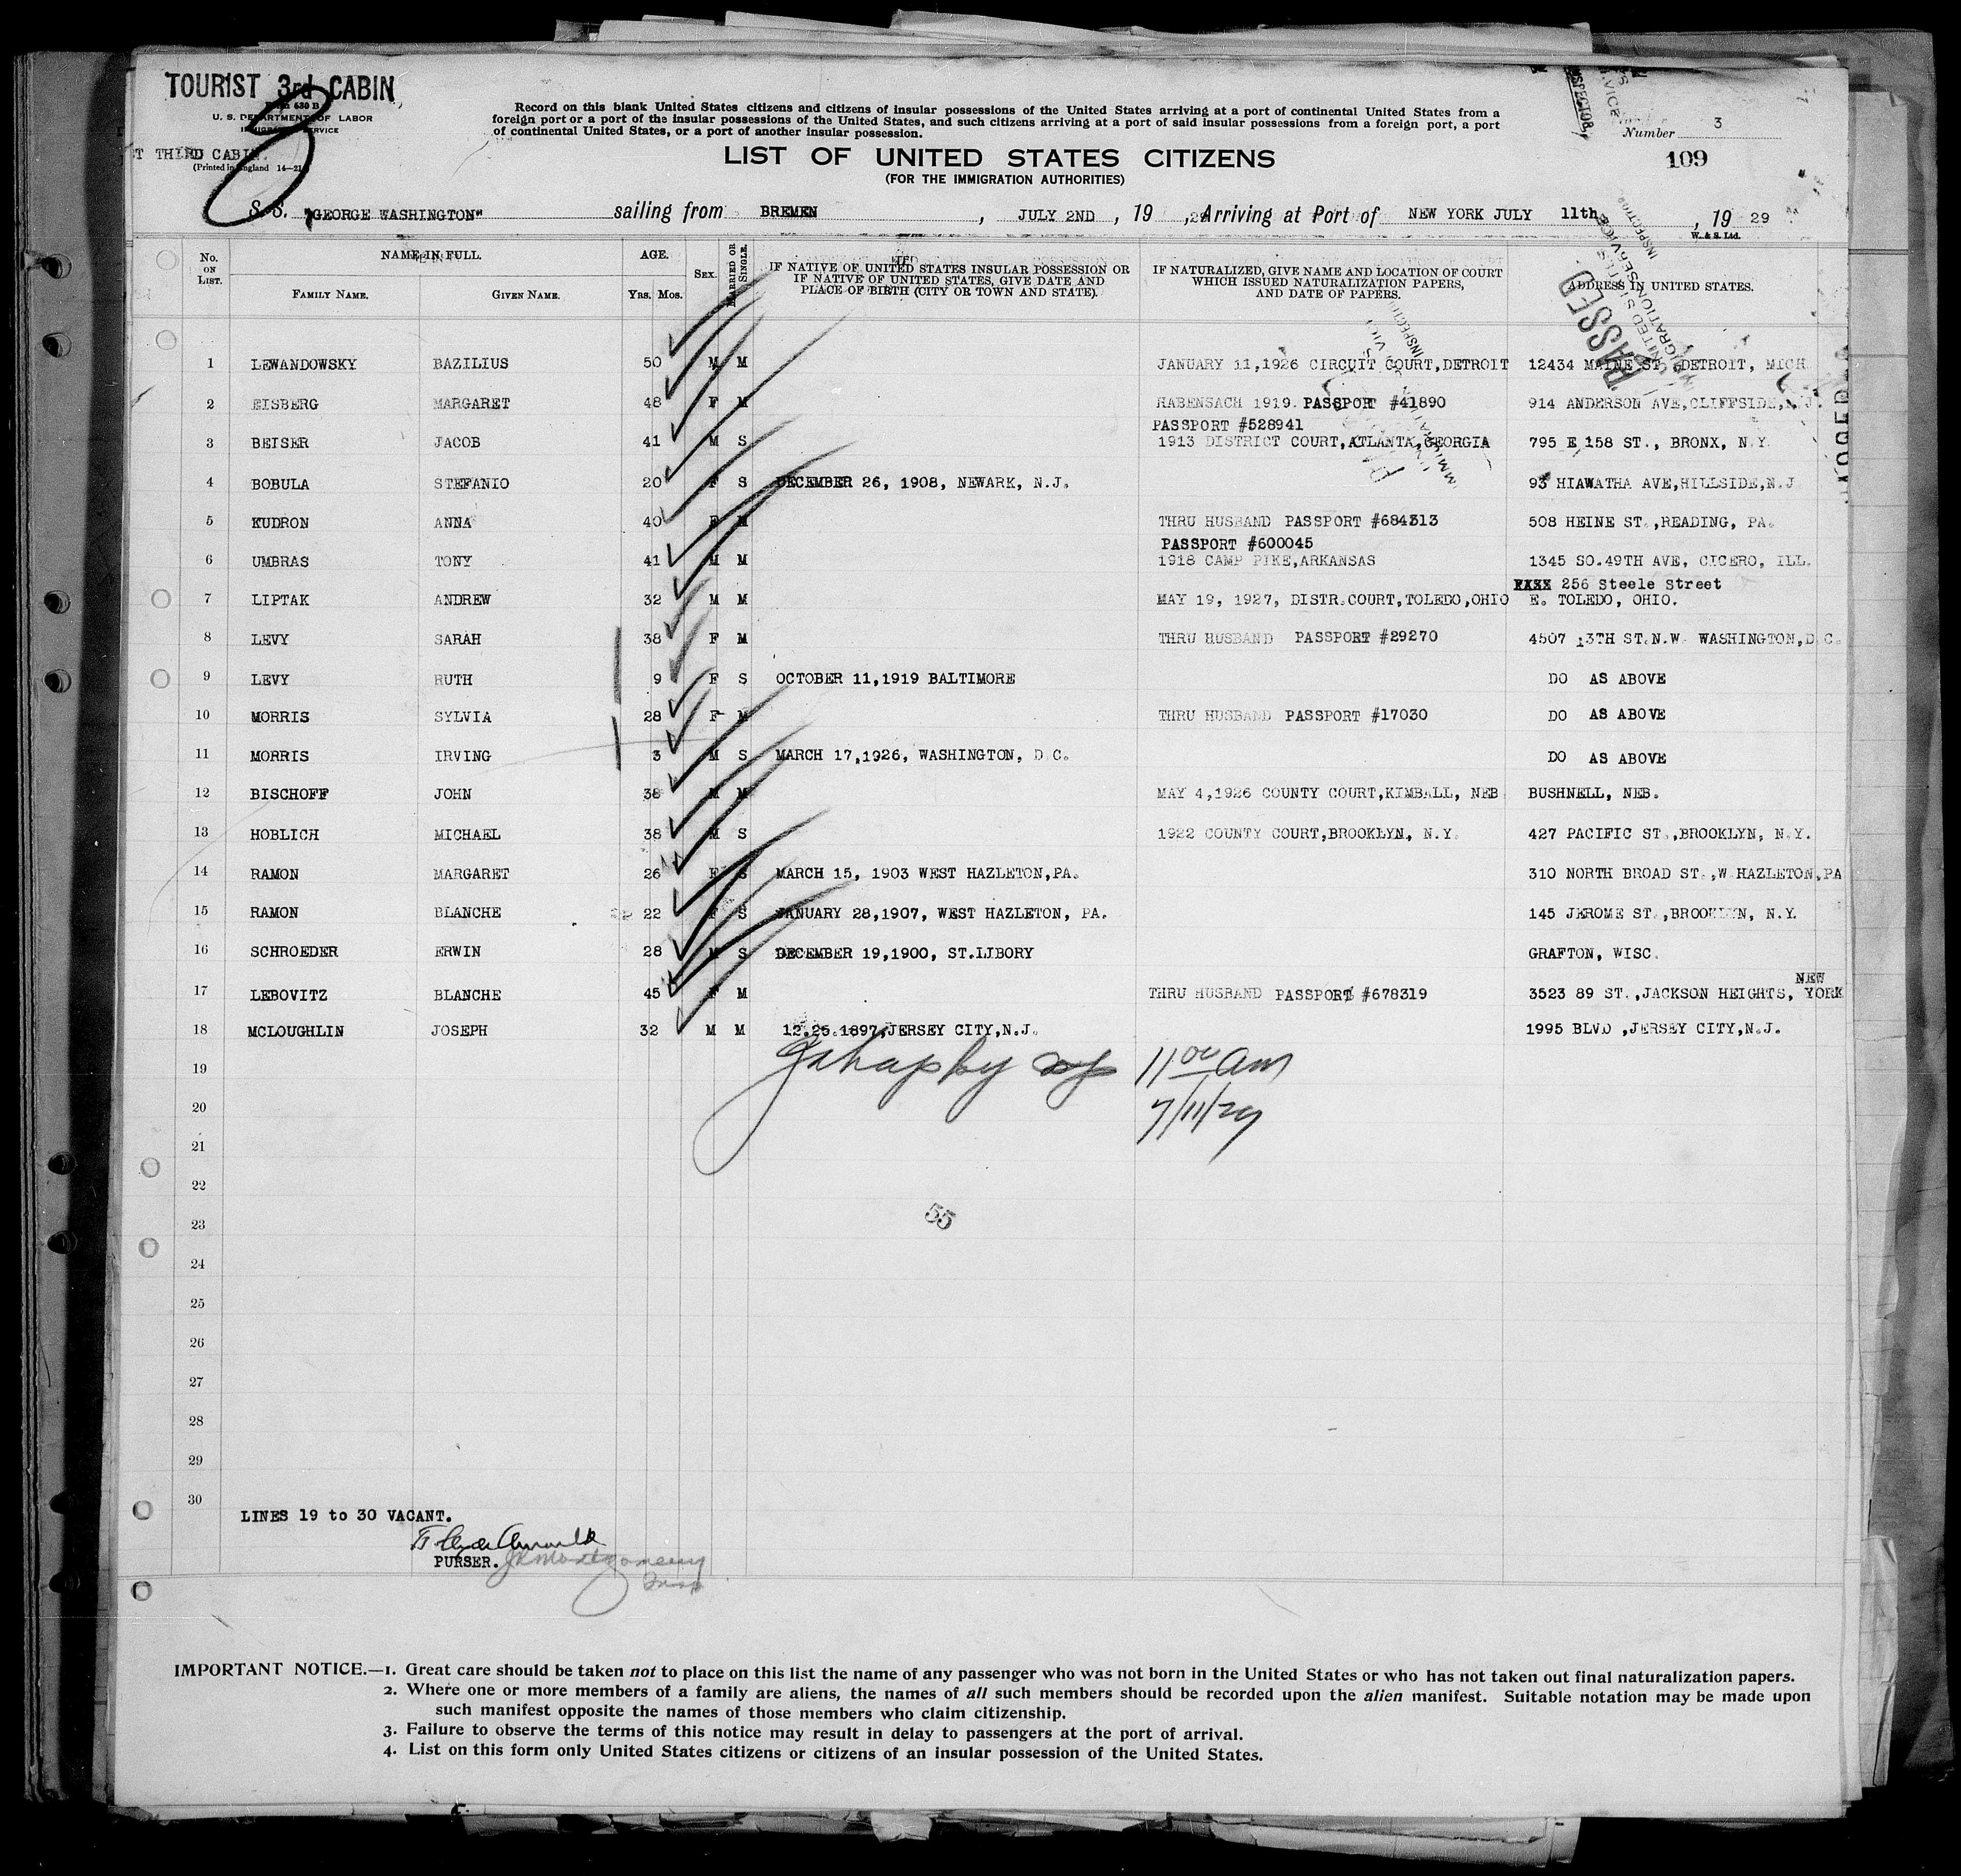 TOURIST 3rd CABIN
Form 630 B
U. S. DEPARTMENT OF LABOR
IMMIGRATION SERVICE
T THIRD CABIN.
(Printed in England 14—21)
Record on this blank United States citizens and citizens of insular possessions of the United States arriving at a port of continental United States from a
foreign port or a port of the insular possessions of the United States, and such citizens arriving at a port of said insular possessions from a foreign port, a port
of continental United States, or a port of another insular possession.
Number 3
109
LIST OF UNITED STATES CITIZENS
(FOR THE IMMIGRATION AUTHORITIES)
S. S. "GEORGE WASHINGTON" sailing from BREMEN, JULY 2ND, 19 29, Arriving at Port of NEW YORK JULY 11th, 19 29
W. & S. Ltd.
No. ON LIST. NAME IN FULL. AGE. SEX. MARRIED OR SINGLE. IF NATIVE OF UNITED STATES INSULAR POSSESSION OR IF NATIVE OF UNITED STATES, GIVE DATE AND PLACE OF BIRTH (CITY OR TOWN AND STATE). IF NATURALIZED, GIVE NAME AND LOCATION OF COURT WHICH ISSUED NATURALIZATION PAPERS, AND DATE OF PAPERS. ADDRESS IN UNITED STATES.
FAMILY NAME. GIVEN NAME. Yrs. Mos.
PASSED
1 LEWANDOWSKY BAZILIUS 50 M M JANUARY 11,1926 CIRCUIT COURT,DETROIT 12434 MAINE ST. DETROIT, MICH
2 EISBERG MARGARET 48 F M HABENSACH 1919. PASSPORT #41890 914 ANDERSON AVE,CLIFFSIDE,N.J.
PASSPORT #528941
3 BEISER JACOB 41 M S 1913 DISTRICT COURT,ATLANTA,GEORGIA 795 E 158 ST., BRONX, N.Y.
4 BOBULA STEFANIO 20 F S DECEMBER 26, 1908, NEWARK, N.J. 93 HIAWATHA AVE,HILLSIDE,N.J
5 KUDRON ANNA 40 F M THRU HUSBAND PASSPORT #684313 508 HEINE ST.,READING, PA.
PASSPORT #600045
6 UMBRAS TONY 41 M M 1918 CAMP PIKE,ARKANSAS 1345 SO.49TH AVE, CICERO, ILL.
256 Steele Street
7 LIPTAK ANDREW 32 M M MAY 19, 1927, DISTR.COURT,TOLEDO,OHIO E. TOLEDO, OHIO.
8 LEVY SARAH 38 F M THRU HUSBAND PASSPORT #29270 4507 13TH ST.N.W. WASHINGTON,D.C.
9 LEVY RUTH 9 F S OCTOBER 11,1919 BALTIMORE DO AS ABOVE
10 MORRIS SYLVIA 28 F M THRU HUSBAND PASSPORT #17030 DO AS ABOVE
11 MORRIS IRVING 3 M S MARCH 17,1926, WASHINGTON, D C. DO AS ABOVE
12 BISCHOFF JOHN 38 M M MAY 4,1926 COUNTY COURT,KIMBALL, NEB BUSHNELL, NEB.
13 HOBLICH MICHAEL 38 M S 1922 COUNTY COURT,BROOKLYN, N.Y. 427 PACIFIC ST.,BROOKLYN, N.Y.
14 RAMON MARGARET 26 F S MARCH 15, 1903 WEST HAZLETON,PA. 310 NORTH BROAD ST.,W HAZLETON,PA
15 RAMON BLANCHE 22 F S JANUARY 28,1907, WEST HAZLETON, PA. 145 JEROME ST.,BROOKLYN, N.Y.
16 SCHROEDER ERWIN 28 M S DECEMBER 19,1900, ST.LIBORY GRAFTON, WISC.
17 LEBOVITZ BLANCHE 45 F M THRU HUSBAND PASSPORT #678319 3523 89 ST.,JACKSON HEIGHTS, NEW YORK
18 MCLOUGHLIN JOSEPH 32 M M 12.25.1897,JERSEY CITY,N.J. 1995 BLVD ,JERSEY CITY,N.J.
19 11 00 am
20 7/11/29
21
22
23 55
24
25
26
27
28
29
30
LINES 19 to 30 VACANT.
PURSER. Montgomery
IMPORTANT NOTICE.—1. Great care should be taken not to place on this list the name of any passenger who was not born in the United States or who has not taken out final naturalization papers.
2. Where one or more members of a family are aliens, the names of all such members should be recorded upon the alien manifest. Suitable notation may be made upon
such manifest opposite the names of those members who claim citizenship.
3. Failure to observe the terms of this notice may result in delay to passengers at the port of arrival.
4. List on this form only United States citizens or citizens of an insular possession of the United States.